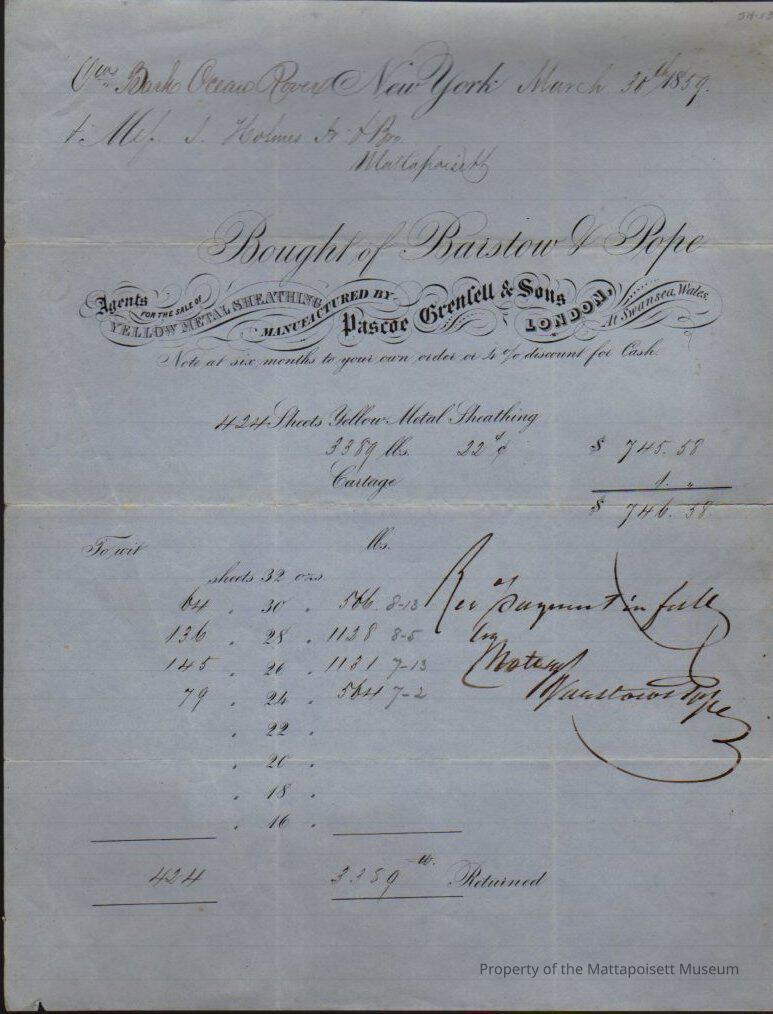 Own.rs Bark Ocean Rover New York March 30th 1859.
to Mess. J. Holmes Jr. & Bro.
Mattapoisett
Bought of Barstow & Pope
Agents FOR THE SALE OF YELLOW METAL SHEATHING, MANUFACTURED BY Pascoe Grenfell & Sons LONDON, At Swansea, Wales.
Note at six months to your own order or 4 % discount for Cash.
424 Sheets Yellow Metal Sheathing
3389 lbs. 22 ¢ $ 745.58
Cartage 1. "
$ 746.58
To wit lbs.
sheets 32 ozs.
64 " 30 " 566 8-13
136 " 28 " 1128 8-5
145 " 26 " 1131 7-13
79 " 24 " 564 7-2
" 22 "
" 20 "
" 18 "
" 16 "
424 3389 lb. Returned
Rec'd payment in full
by Note
Barstow & Pope
Property of the Mattapoisett Museum